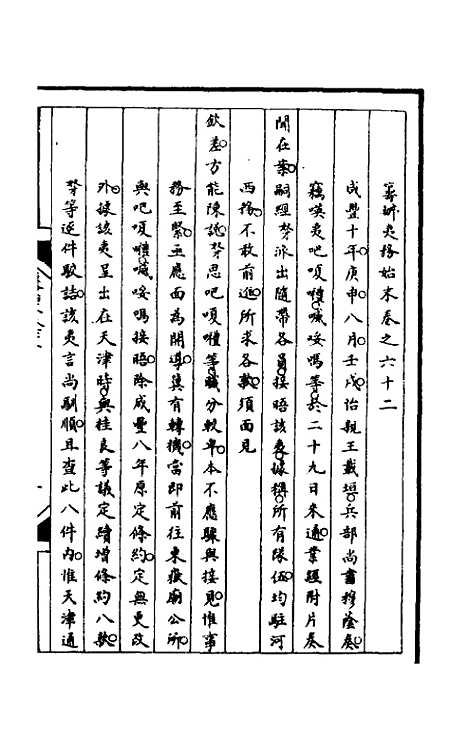 籌辦夷務始末卷之六十二
咸豐十年庚申八月壬戌怡親王載垣兵部尚書穆蔭奏
竊嘆夷吧嗄禮嘁哚嗎等於二十九日來通業經附片奏
聞在案嗣經孥派出隨帶各員接晤該夷據稱所有隊伍均駐河
西務不敢前進所求各款須面見
欽差方能陳說孥思吧嗄禮等職分較卑本不應驟與接見惟事
務至緊亟應面為開導冀有轉機當即前往東嶽廟公所
與吧嗄禮嘁哚嗎接晤除咸豐八年原定條約定無更改
外據該夷呈出在天津時與桂良等議定續增條約八款
孥等逐件駮詰該夷言尚馴順且查此八件內惟天津通